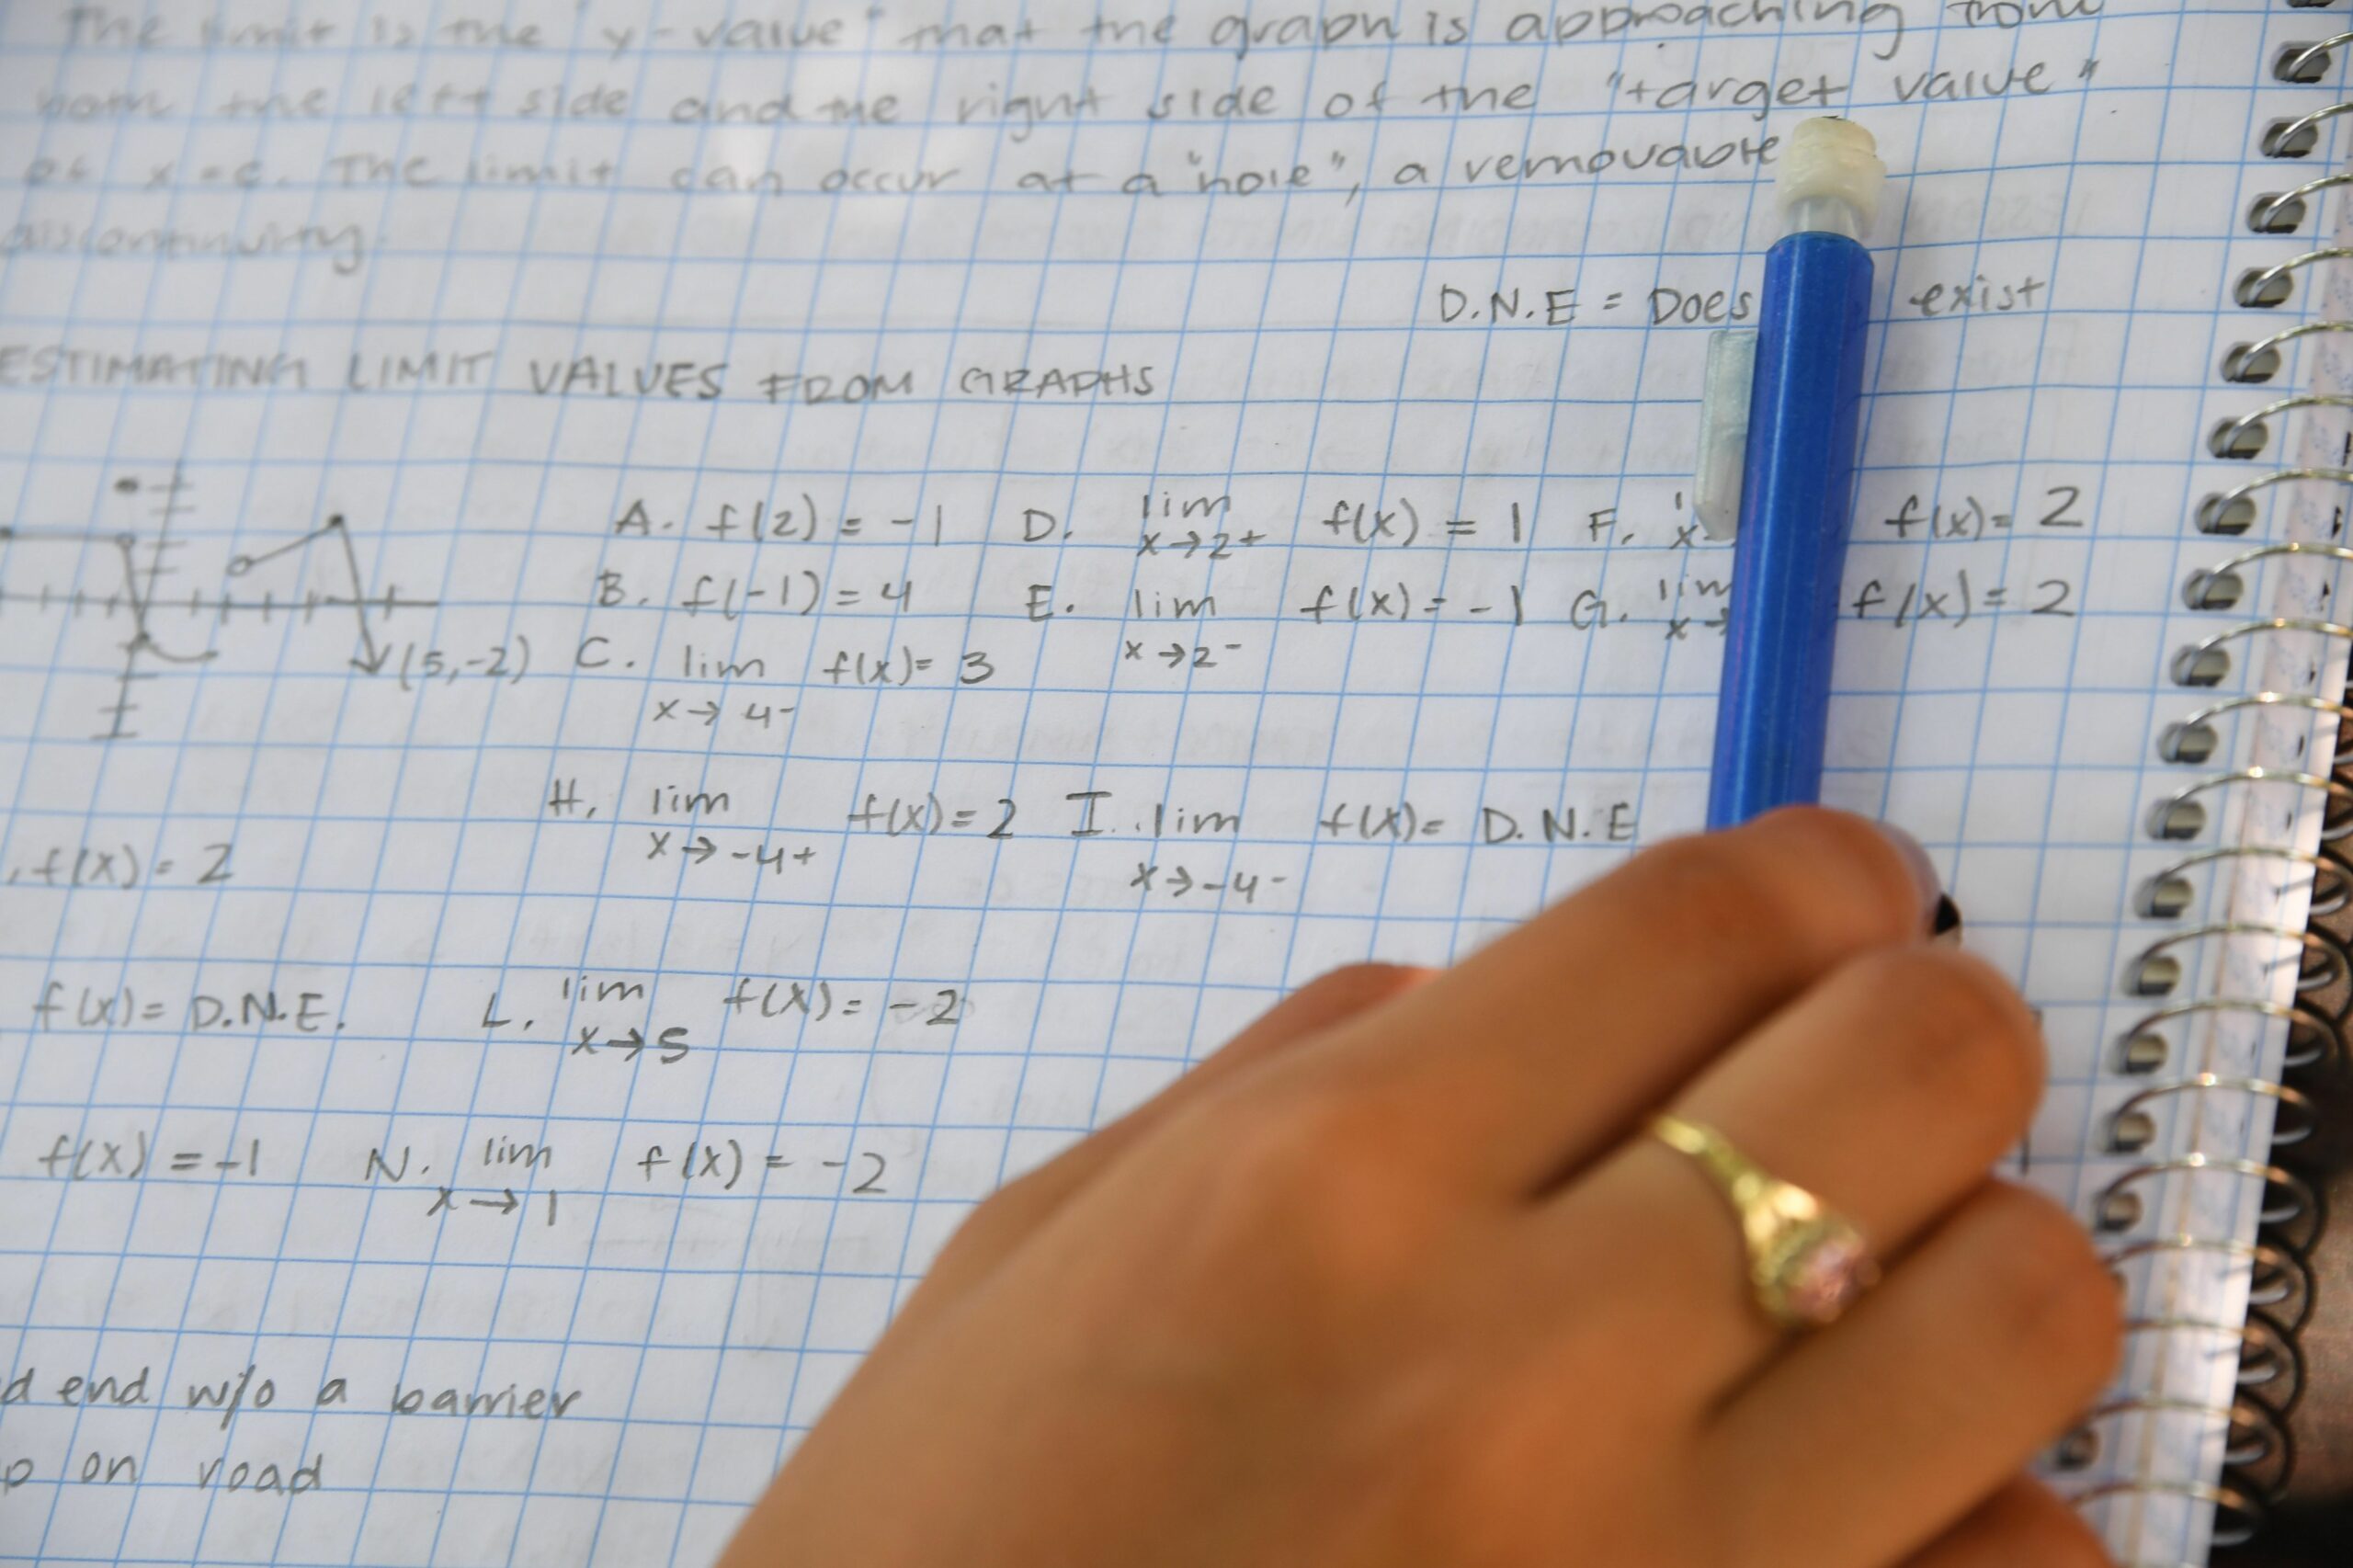 The limit is the "y-value" that the graph is approaching from
both the left side and the right side of the "target value"
of x=c. The limit can occur at a "hole", a removable
discontinuity.
D.N.E = Does exist
ESTIMATING LIMIT VALUES FROM GRAPHS
A. f(2) = -1 D. lim x→2+ f(x) = 1 F. x f(x) = 2
B. f(-1) = 4 E. lim x→2- f(x) = -1 G. lim x→ f(x) = 2
(5,-2) C. lim x→4- f(x) = 3
H. lim x→-4+ f(x) = 2 I. lim x→-4- f(x) = D.N.E
f(x) = 2
f(x) = D.N.E. L. lim x→5 f(x) = -2
f(x) = -1 N. lim x→1 f(x) = -2
d end w/o a barrier
on road